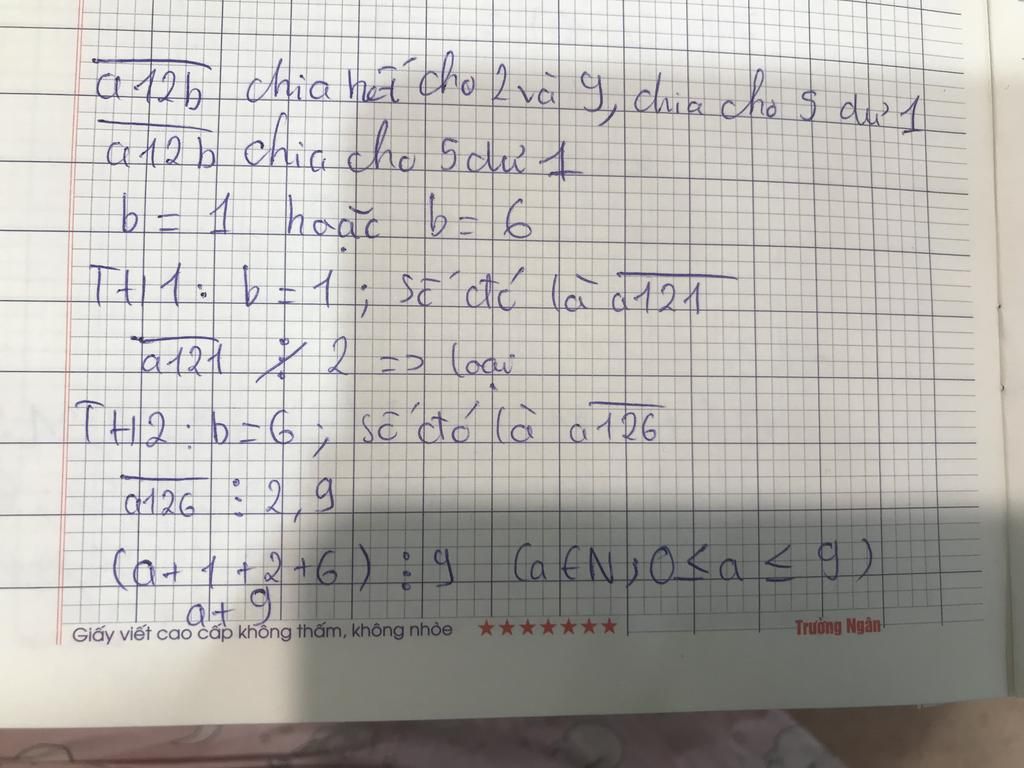 a12b chia hết cho 2 và 9, chia cho 5 dư 1
a12b chia cho 5 dư 1
b = 1 hoặc b = 6
TH1: b = 1; số đó là a121
a121 ⋮̸ 2 => loại
TH2: b = 6; số đó là a126
a126 ⋮ 2, 9
(a + 1 + 2 + 6) ⋮ 9 (a ∈ N; 0 ≤ a ≤ 9)
a + 9
Giấy viết cao cấp không thấm, không nhòe ★★★★★★★ Trường Ngân